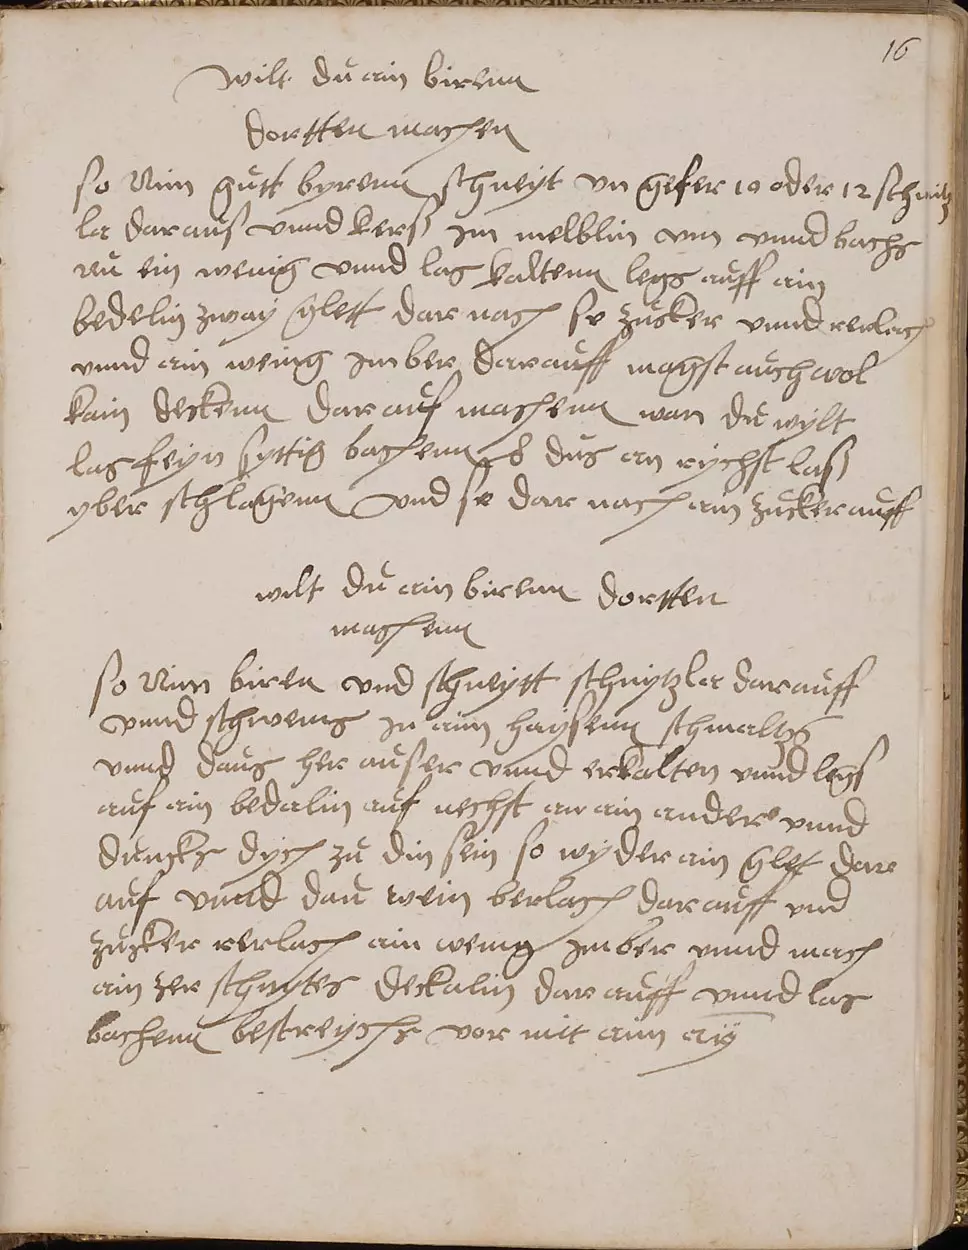 16
wilt du ain birenn
dortten machen
so Nim gutt byrenn schneyt vn gefer 10 oder 12 schnitz
la daraus vnnd kers im melblin vm vnnd bachs
nu ein wenig vnnd las kaltenn legs auff ain
bedelin zway glett dar nach se zucker vnnd rerlach
vnnd ain wenig Imber darauff magst auch wol
kain deckenn darauf machenn wan du wylt
las feyn syttig bachenn dus an rychst lass
yber schlagenn vnd se dar nach ain zucker auff
wilt du ain birenn dortten
machenn
so Nim biren vnd schneytt schnytzla darauff
vnnd schwems in aim haysenn schmaltz
vnnd daus her auser vnnd erkalten vnnd legs
auf ain bedalin auf nechst an ain ander vnnd
dunckt dych zu din sein so wyder ain glet dar
auf vnnd dau wein berlach darauff vnd
zucker rerlach ain wenig Imber vnnd mach
ain zer schnytes deckalin darauff vnnd las
bachenn bestreychs vor mit aim ay